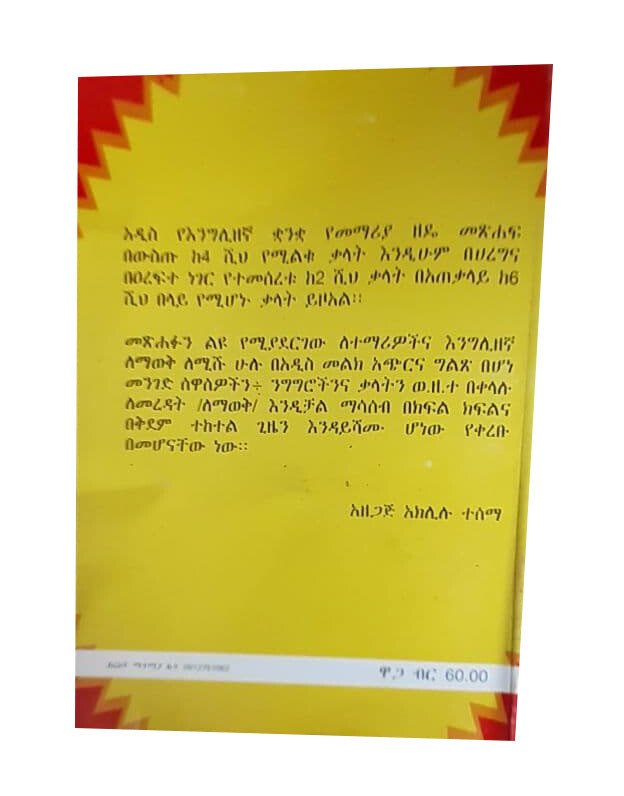 አዲስ የእንግሊዘኛ ቋንቋ የመማሪያ ዘዴ መጽሐፍ
በውስጡ ከ4 ሺህ የሚልቁ ቃላት እንዲሁም በሀረግና
በዐረፍተ ነገር የተመሰረቱ ከ2 ሺህ ቃላት በአጠቃላይ ከ6
ሺህ በላይ የሚሆኑ ቃላት ይዞአል፡፡
መጽሐፉን ልዩ የሚያደርገው ለተማሪዎችና እንግሊዘኛ
ለማወቅ ለሚሹ ሁሉ በአዲስ መልክ አጭርና ግልጽ በሆነ
መንገድ ስዋስዎችን፥ ንግግሮችንና ቃላትን ወ.ዘ.ተ በቀላሉ
ለመረዳት /ለማወቅ/ እንዲቻል ማሳሰብ በክፍል ክፍልና
በቅደም ተከተል ጊዜን እንዳይሻሙ ሆነው የቀረቡ
በመሆናቸው ነው፡፡
አዘጋጅ አክሊሉ ተሰማ
ዋጋ ብር 60.00